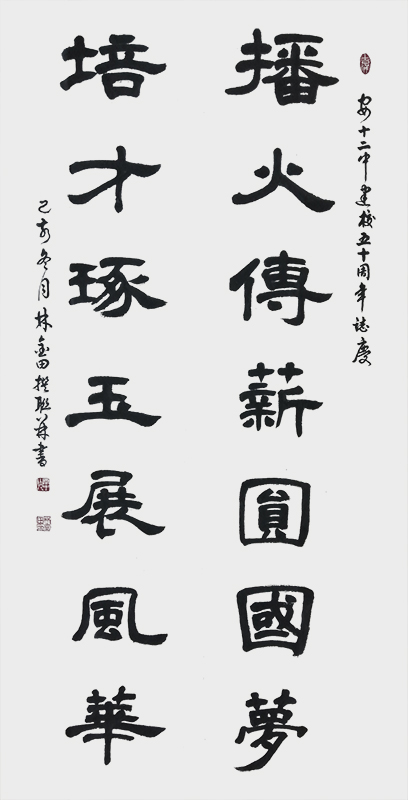 安十二中建校五十周年誌慶
播火傳薪圓國夢
培才琢玉展風華
己亥冬月林金田撰聯並書